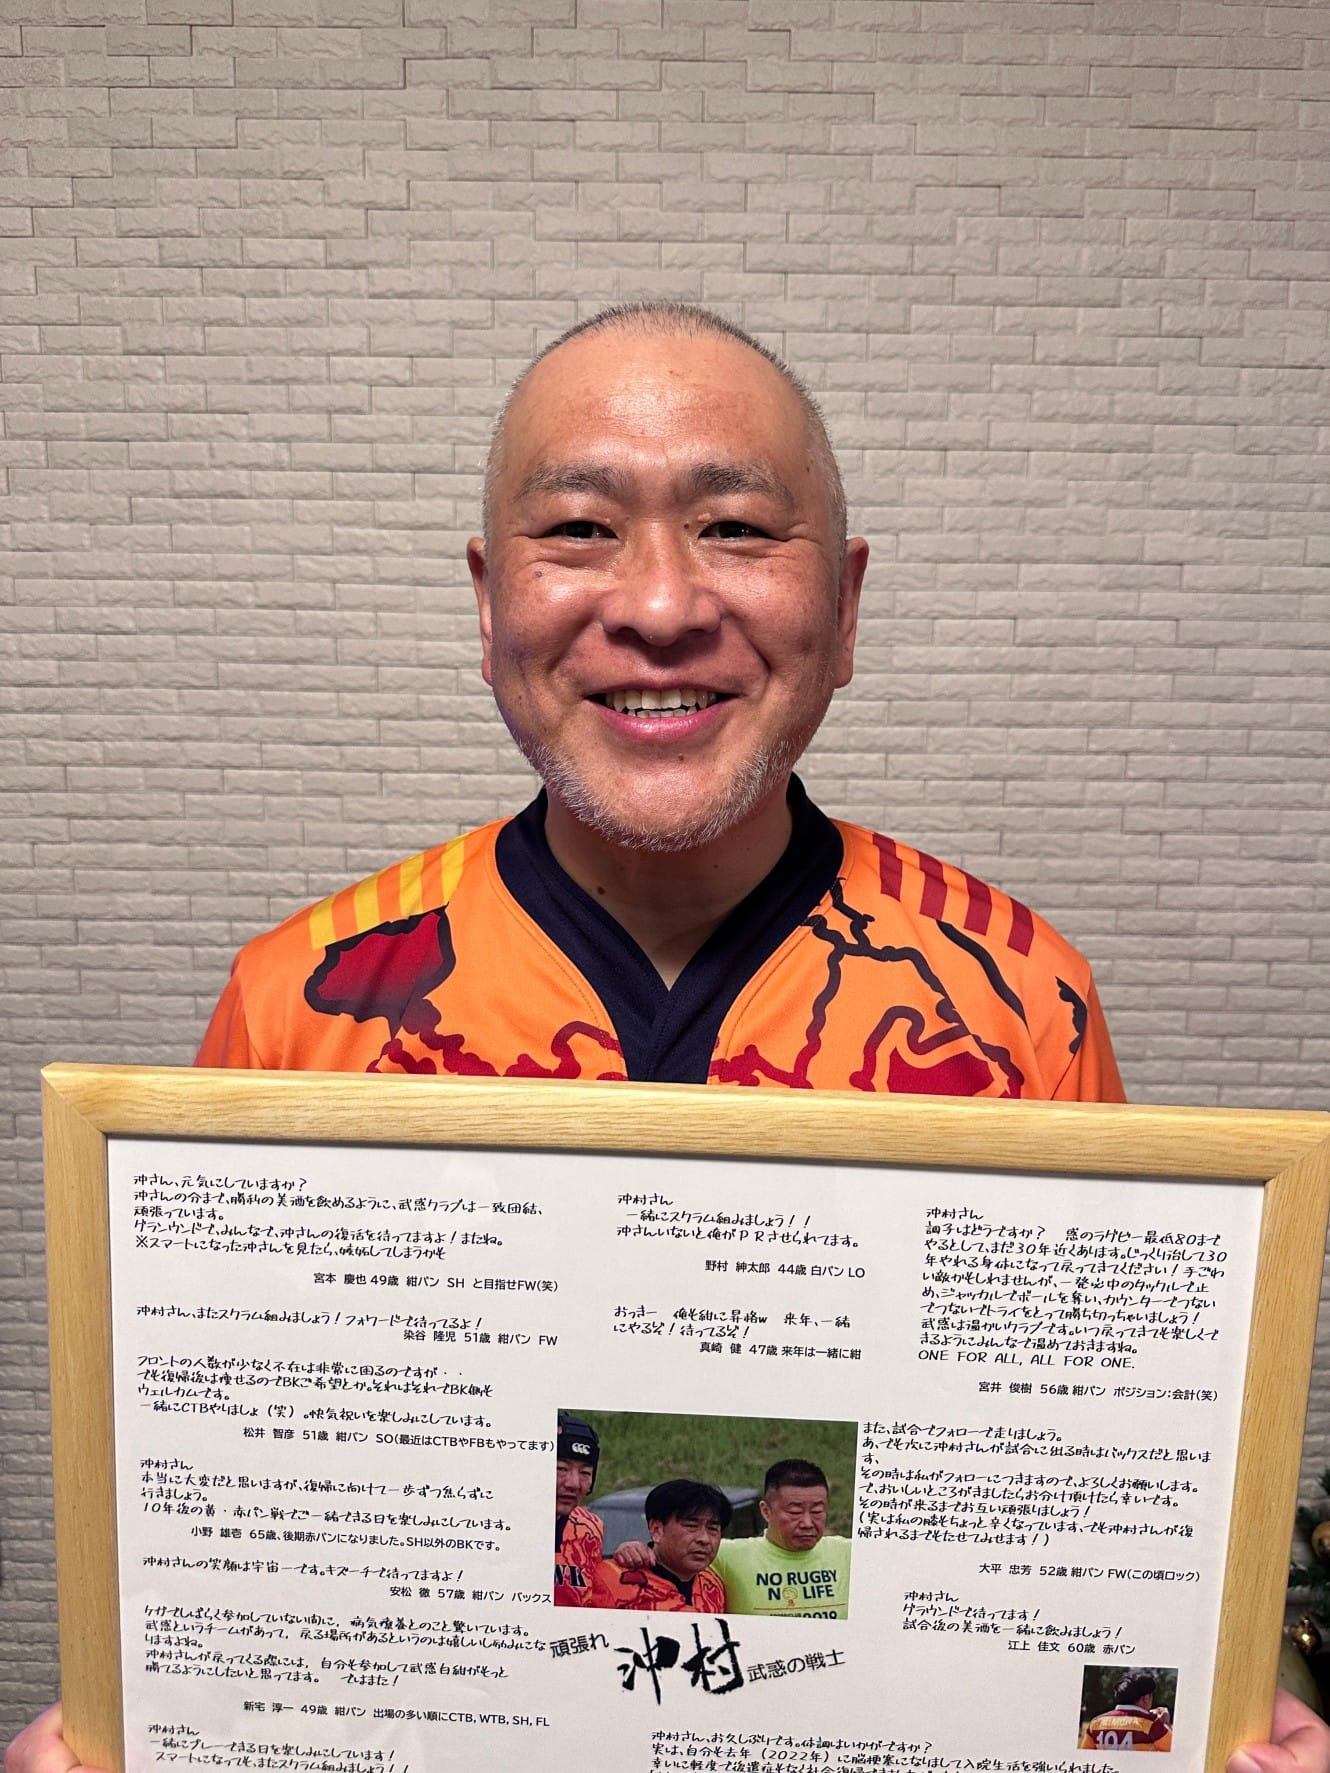 沖さん、元気にしていますか?
沖さんの分まで、勝利の美酒を飲めるように、武惑クラブは一致団結、
頑張っています。
グランウンドで、みんなで、沖さんの復活を待ってますよ!またね。
※スマートになった沖さんを見たら、嫉妬してしまうかも
宮本 慶也 49歳 紺パン SH と目指せFW(笑)
沖村さん、またスクラム組みましょう!フォワードで待ってるよ!
染谷 隆児 51歳 紺パン FW
フロントの人数が少なく不在は非常に困るのですが・・
でも復帰後は痩せるのでBKご希望とか。それはそれでBK側も
ウェルカムです。
一緒にCTBやりましょ(笑)。快気祝いを楽しみにしています。
松井 智彦 51歳 紺パン SO(最近はCTBやFBもやってます)
沖村さん
本当に大変だと思いますが、復帰に向けて一歩ずつ焦らずに
行きましょう。
10年後の黄・赤パン戦でご一緒できる日を楽しみにしています。
小野 雄壱 65歳、後期赤パンになりました。SH以外のBKです。
沖村さんの笑顔は宇宙一です。キズーチで待ってますよ!
安松 徹 57歳 紺パン バックス
ケガでしばらく参加していない間に、病気療養とのこと驚いています。
武惑というチームがあって、戻る場所があるというのは嬉しいし励みにな
りますよね。
沖村さんが戻ってくる際には、自分も参加して武惑白紺がもっと
勝てるようにしたいと思ってます。 ではまた!
新宅 淳一 49歳 紺パン 出場の多い順にCTB, WTB, SH, FL
沖村さん
一緒にプレーできる日を楽しみにしています!
スマートになっても、またスクラム組みましょう!!
沖村さん
一緒にスクラム組みましょう!!
沖さんいないと俺がPRさせられてます。
野村 紳太郎 44歳 白パン LO
おっきー 俺も紺に昇格w 来年、一緒
にやるぞ!待ってるぞ!
真崎 健 47歳 来年は一緒に紺
NO RUGBY
NO LIFE
2019
頑張れ 沖村 武惑の戦士
沖村さん、お久しぶりです。体調はいかがですか?
実は、自分も去年(2022年)に脳梗塞になりまして入院生活を強いられました。
幸いに軽度で後遺症もなく社会復帰できましたが
沖村さん
調子はどうですか? 惑のラグビー最低80まで
やるとして、まだ30年近くあります。じっくり治して30
年やれる身体になって戻ってきてください!手ごわ
い敵かもしれませんが、一発必中のタックルで止
め、ジャッカルでボールを奪い、カウンターでつない
でつないでトライをとって勝ち切っちゃいましょう!
武惑は温かいクラブです。いつ戻ってきても楽しくで
きるようにみんなで温めておきますね。
ONE FOR ALL, ALL FOR ONE.
宮井 俊樹 56歳 紺パン ポジション:会計(笑)
また、試合でフォローで走りましょう。
あ、でも次に沖村さんが試合に出る時はバックスだと思いま
す、
その時は私がフォローにつきますので、よろしくお願いします。
で、おいしいところがきましたらお分け頂けたら幸いです。
その時が来るまでお互い頑張りましょう!
(実は私の膝もちょっと辛くなっています、でも沖村さんが復
帰されるまでもたせてみせます!)
大平 忠芳 52歳 紺パン FW(この頃ロック)
沖村さん
グラウンドで待ってます!
試合後の美酒を一緒に飲みましょう!
江上 佳文 60歳 赤パン
104